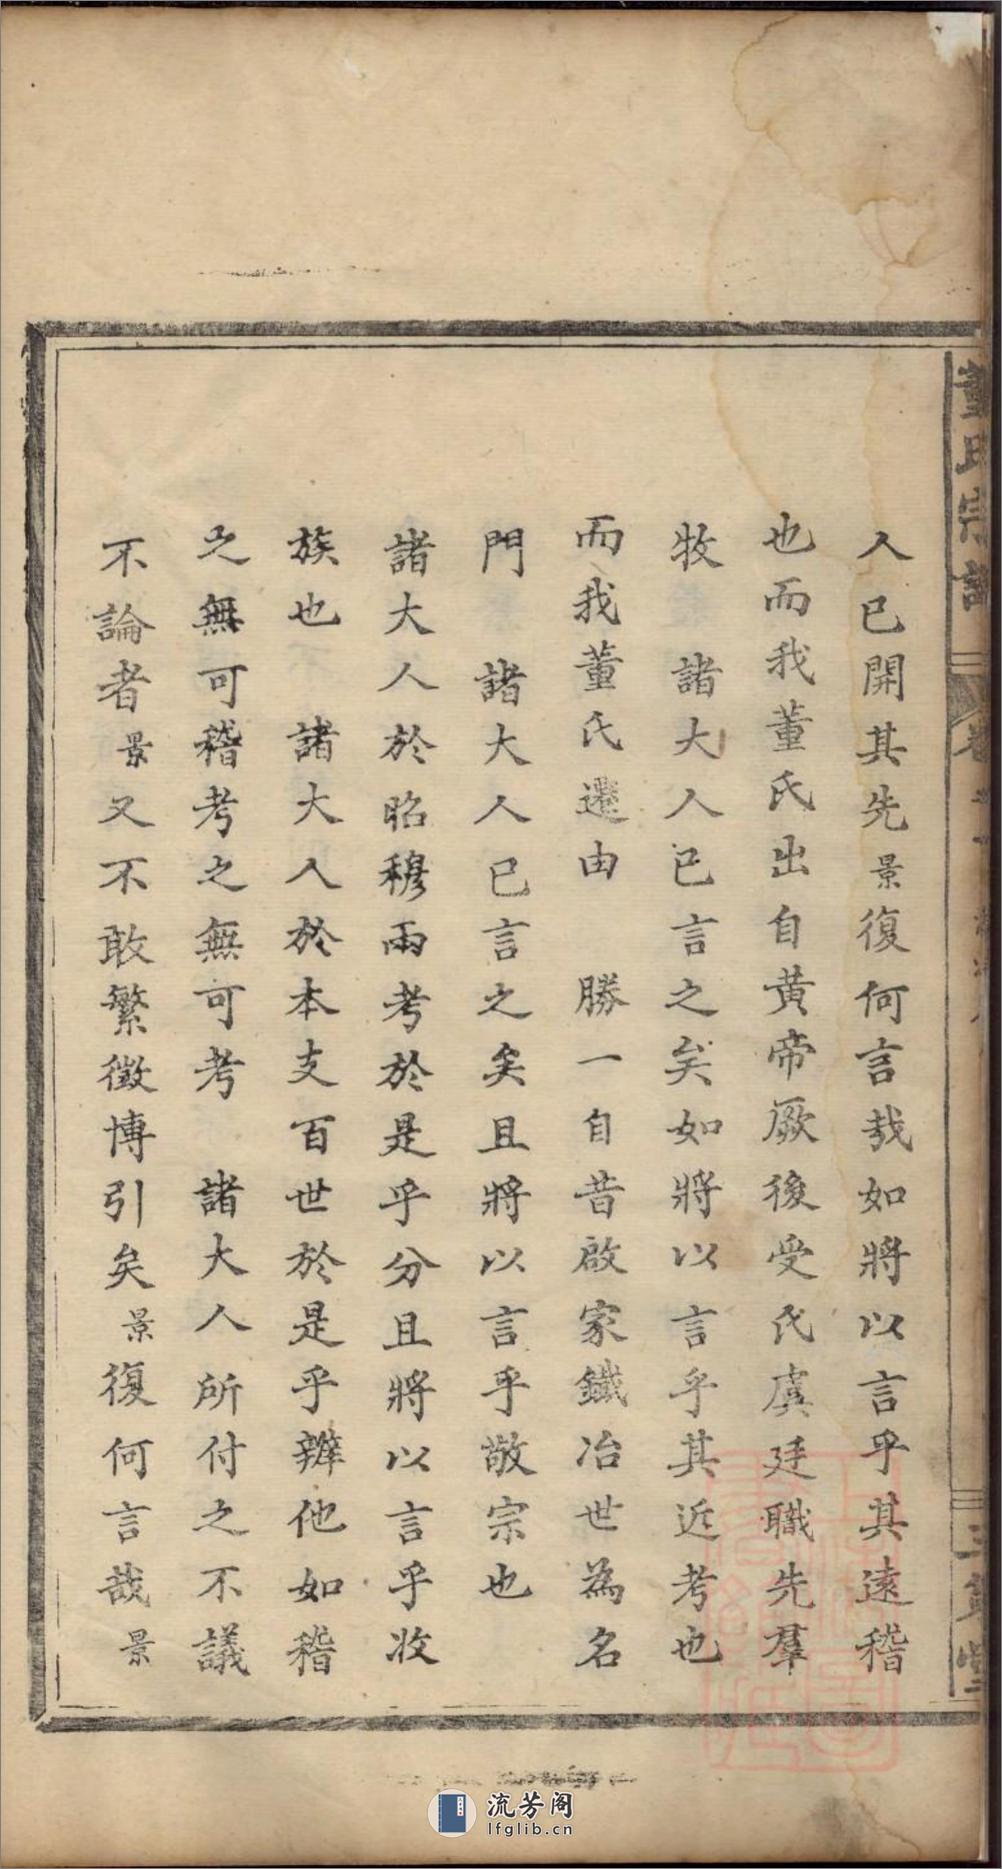 董氏宗譜
人已開其先景復何言哉如將以言乎其遠稽
也而我董氏出自黃帝厥後受氏虞廷職先羣
牧　諸大人已言之矣如將以言乎其近考也
而我董氏遷由　勝一自昔啟家鐵冶世為名
門　諸大人已言之矣且將以言乎敬宗也
諸大人於昭穆兩考於是乎分且將以言乎收
族也　諸大人於本支百世於是乎辨他如稽
之無可稽考之無可考　諸大人所付之不議
不論者景又不敢繁徵博引矣景復何言哉景
流芳阁
lfglib.cn